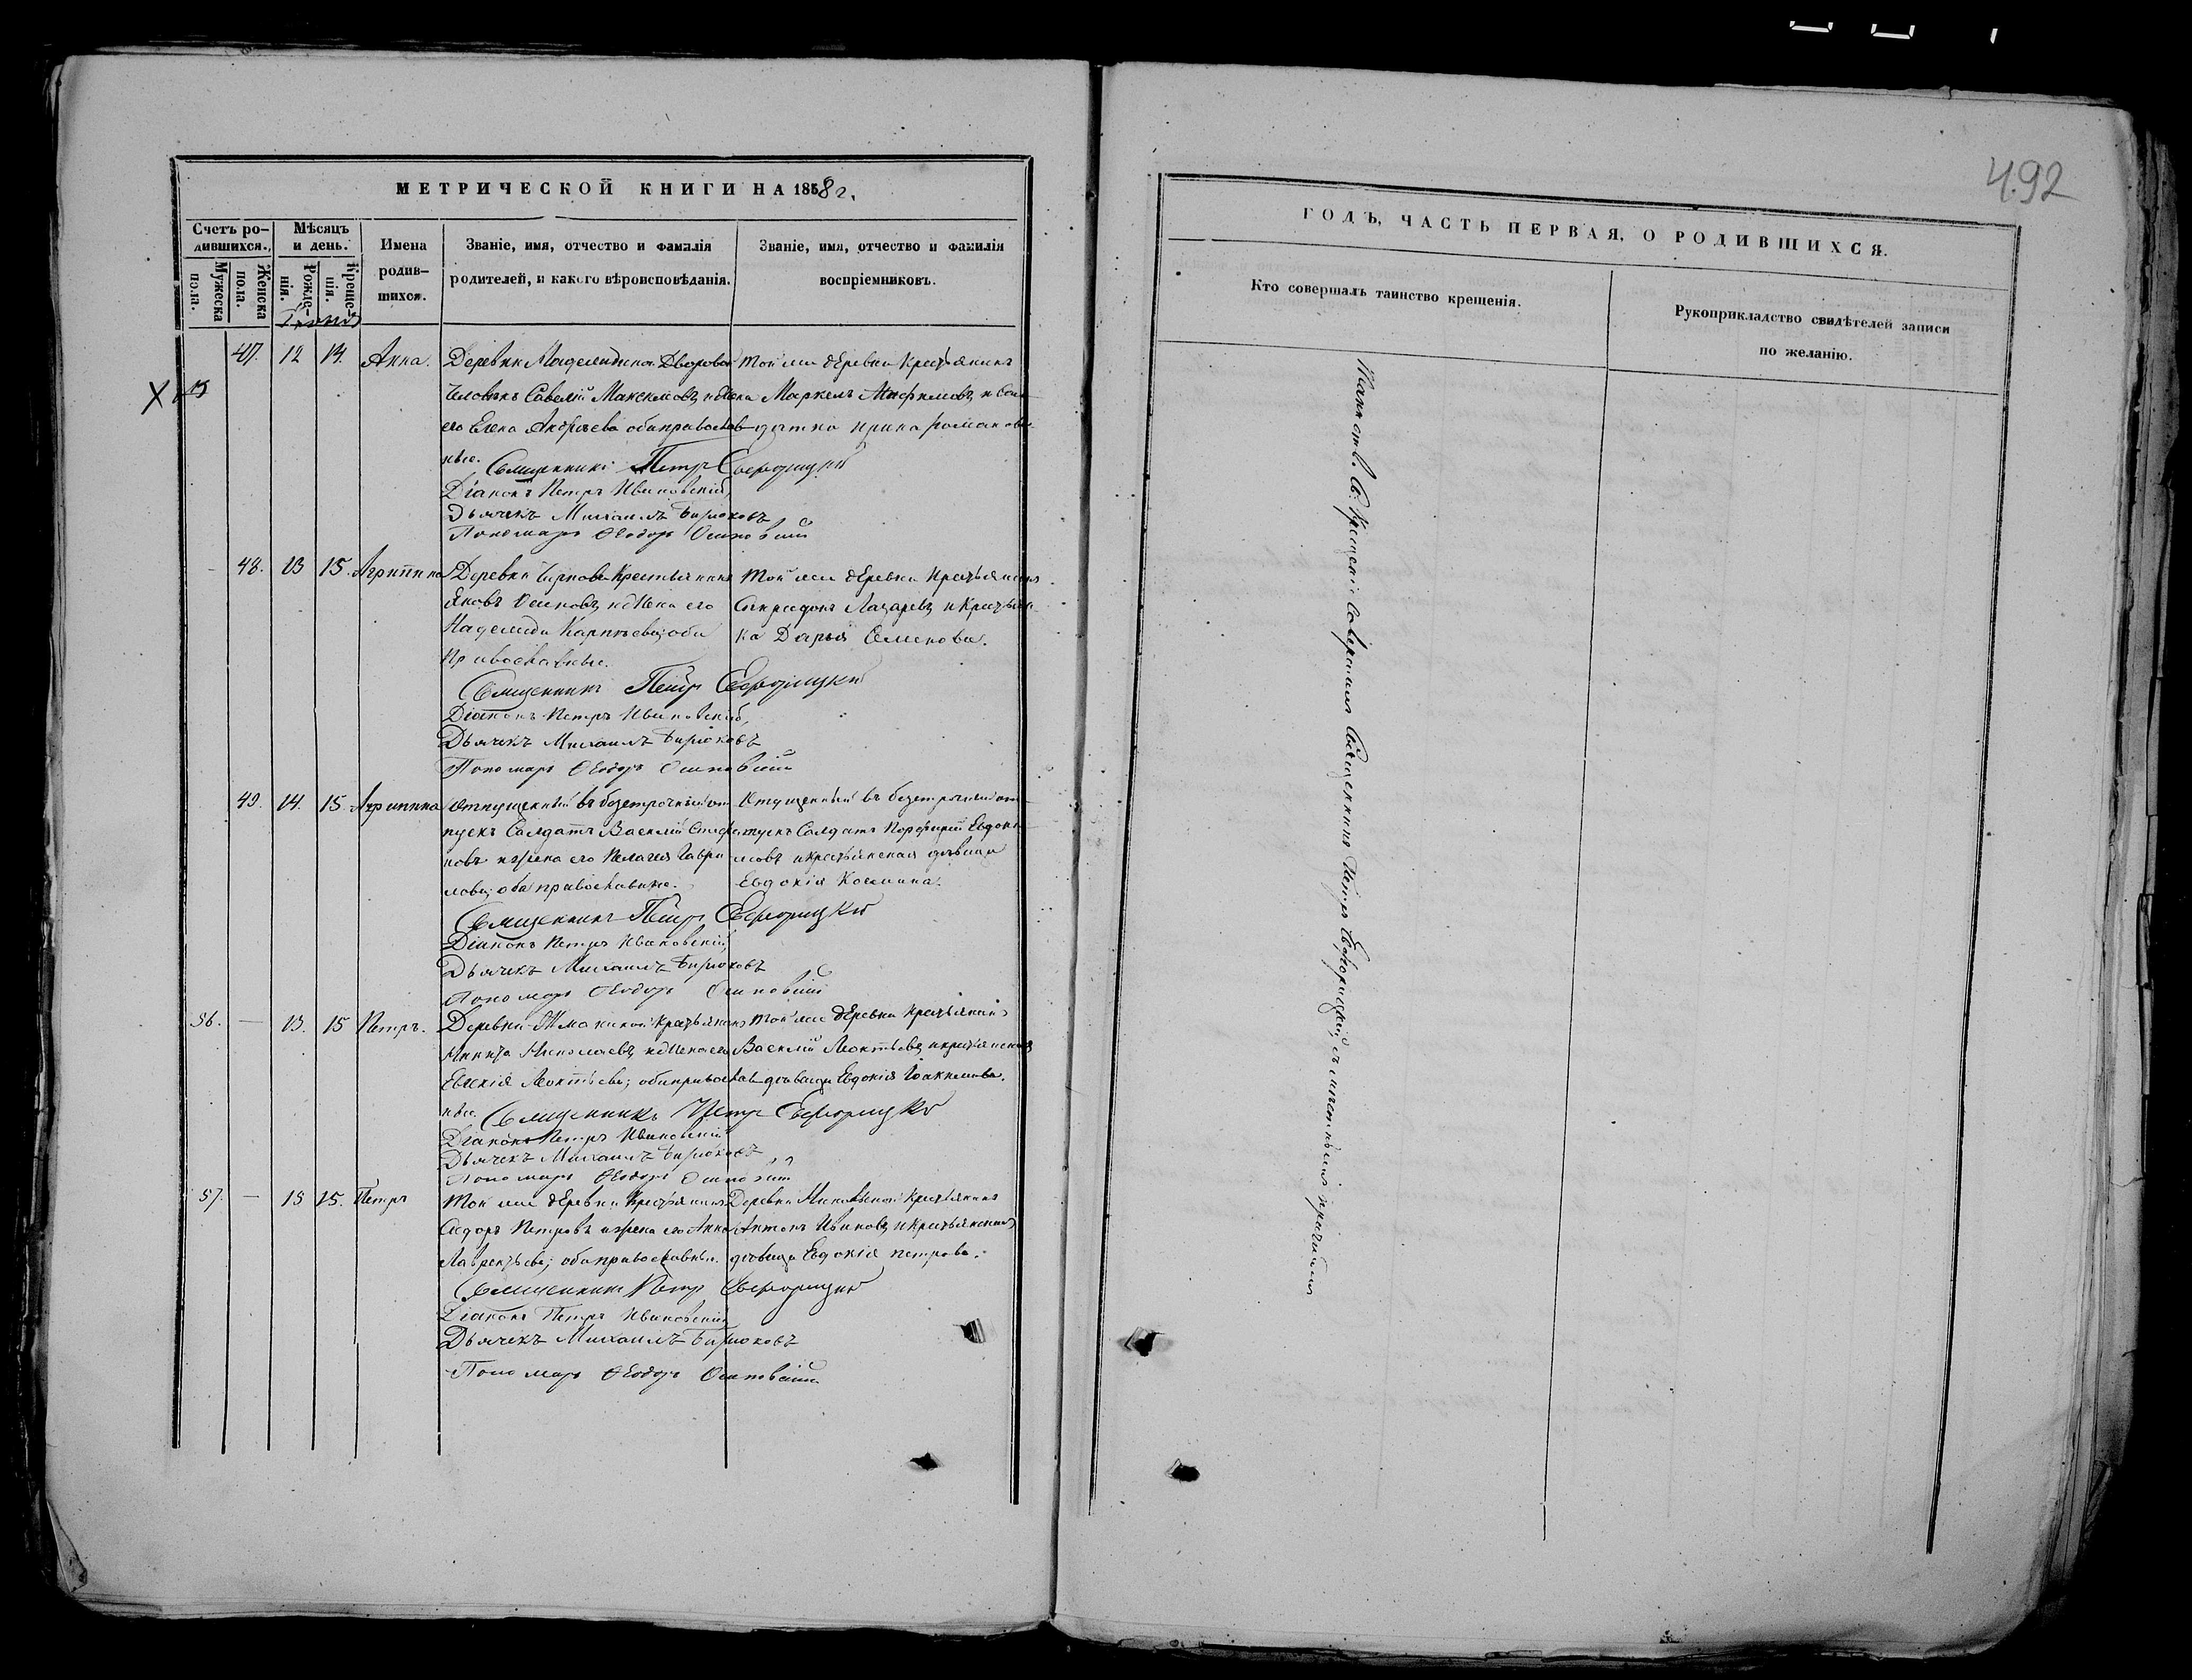 492
МЕТРИЧЕСКОЙ КНИГИ НА 1858 г.
Счетъ ро-
дившихся.
Мужеска
пола.
Женска
пола.
Мѣсяцъ
и день.
Рожде-
нія.
Креще-
нія.
Имена
родив-
шихся.
Званіе, имя, отчество и фамилія
родителей, и какого вѣроисповѣданія.
Званіе, имя, отчество и фамилія
воспріемниковъ.
Іюнь
47. 12 14. Анна.
Деревни Дворовой
Человѣкъ Савелій Максимовъ и жена
его Елена Андреева оба православ-
ные.
Той же деревни Крестьянинъ
Маркелъ и Сол-
датка Ирина Романова
Священникъ Петръ
Діаконъ Петръ Ивановскій
Дьячекъ Михаилъ Бирюковъ
Пономарь Ѳеодоръ
X
48. 13 15. Агрипина
Деревни Крестьянинъ
Яковъ Осиповъ, и жена его
Надежда Карпѣева; оба
Православные.
Той же деревни Крестьянинъ
Спиридонъ Лазаревъ и Крестьян-
ка Дарья Семенова.
Священникъ Петръ
Діаконъ Петръ Ивановскій,
Дьячекъ Михаилъ Бирюковъ
Пономарь Ѳеодоръ
49. 14. 15. Агрипина
Отпущенный въ безсрочный от-
пускъ Солдатъ Василій Стефа-
новъ и жена его Пелагея Гаври-
лова; оба православные.
Отпущенный въ безсрочный от-
пускъ Солдатъ Порфирій Евдоки-
мовъ и крестьянская дѣвица
Евдокія Космина.
Священникъ Петръ
Діаконъ Петръ Ивановскій,
Дьячекъ Михаилъ Бирюковъ
Пономарь Ѳеодоръ
56. — 13. 15 Петръ.
Деревни Крестьянинъ
Никита Николаевъ, и жена его
Евгенія Леонтьева; оба православ-
ные.
Той же деревни Крестьянинъ
Василій Леонтьевъ, и крестьянская
дѣвица Евдокія Іоакимова.
Священникъ Петръ
Діаконъ Петръ Ивановскій
Дьячекъ Михаилъ Бирюковъ
Пономарь Ѳеодоръ
57. — 15 15. Петръ
Той же деревни Крестьянинъ
Сидоръ Петровъ и жена его Анна
Лаврентьева; оба православные.
Деревни Крестьянинъ
Антонъ Ивановъ, и Крестьянская
дѣвица Евдокія Петрова.
Священникъ Петръ
Діаконъ Петръ Ивановскій
Дьячекъ Михаилъ Бирюковъ
Пономарь Ѳеодоръ
ГОДЪ, ЧАСТЬ ПЕРВАЯ, О РОДИВШИХСЯ.
Кто совершалъ таинство крещенія.
Рукоприкладство свидѣтелей записи
по желанію.
Таинство Св. Крещенія Совершалъ Священникъ Петръ съ причтомъ